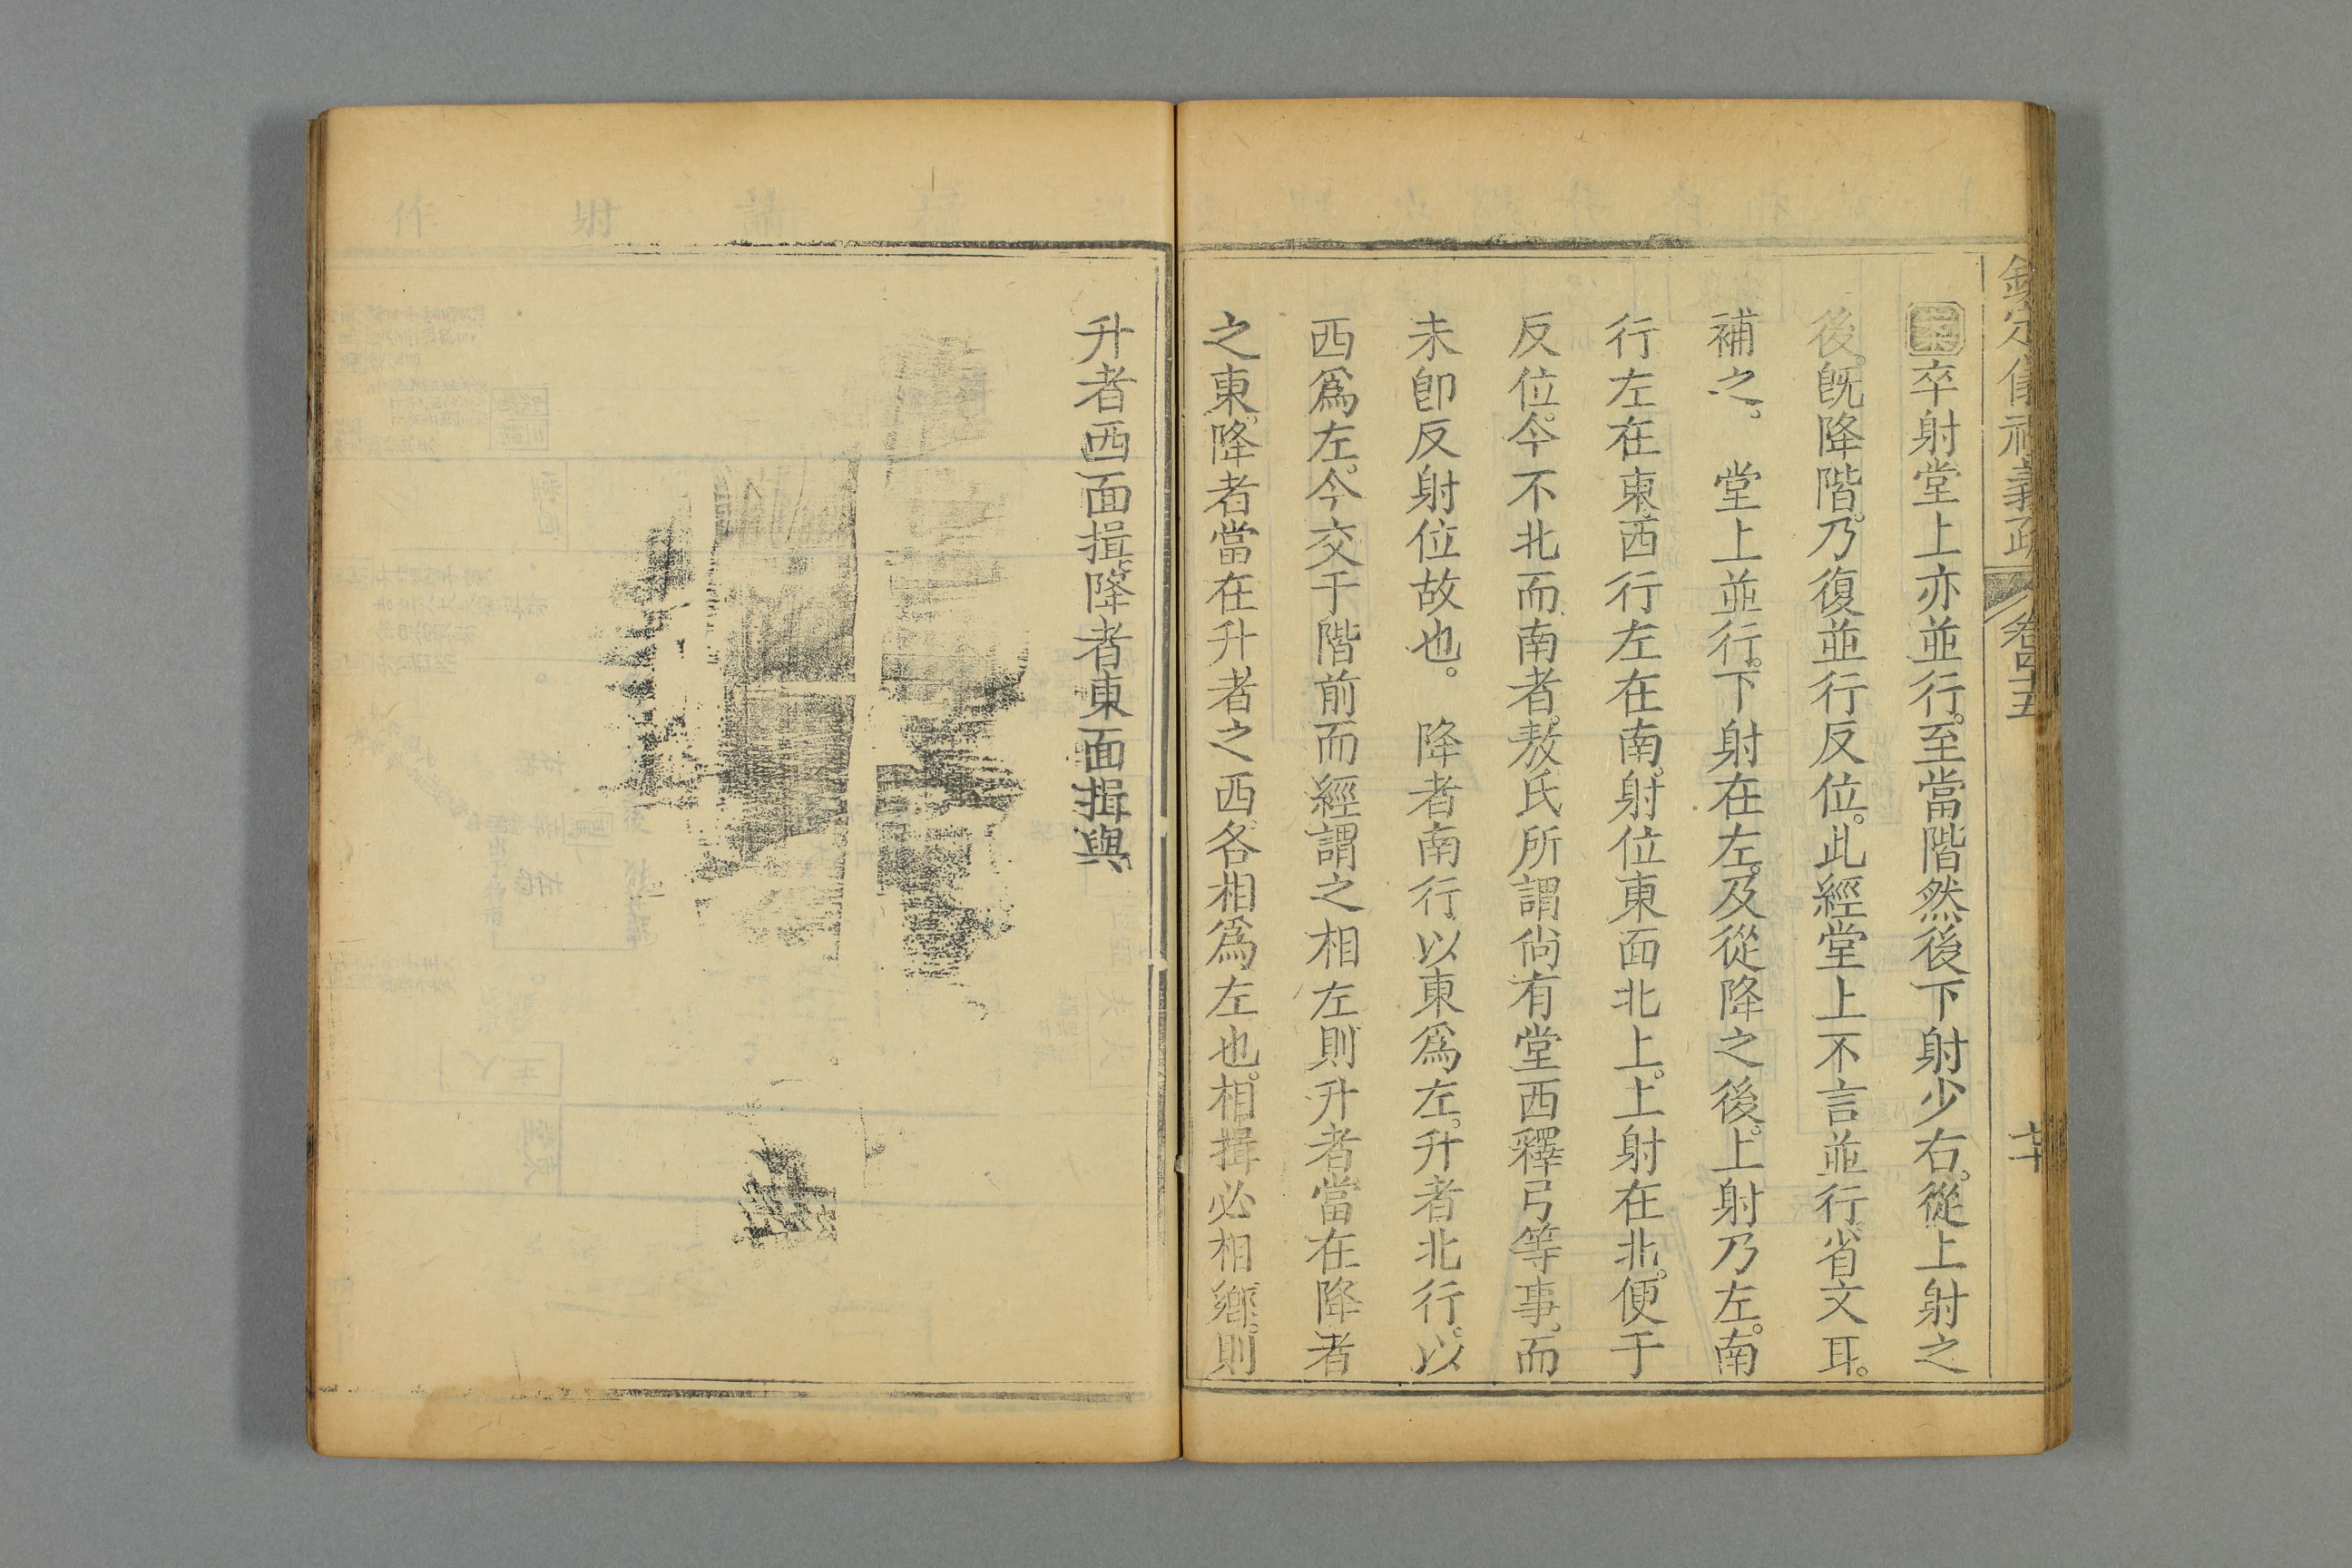 欽定儀禮義疏 卷四十五
卒射堂上亦並行。至當階然後下射少右。從上射之
後。旣降階。乃復並行反位。此經堂上不言並行。省文耳。
補之。 堂上並行。下射在左。及從降之後。上射乃左。南
行左在東。西行左在南。射位東面北上。上射在北。便于
反位。今不北而南者。敖氏所謂尙有堂西釋弓等事。而
未卽反射位故也。 降者南行以東爲左。升者北行。以
西爲左。今交于階前而經謂之相左。則升者當在降者
之東。降者當在升者之西。各相爲左也。相揖必相鄕。則
升者西面揖。降者東面揖與。